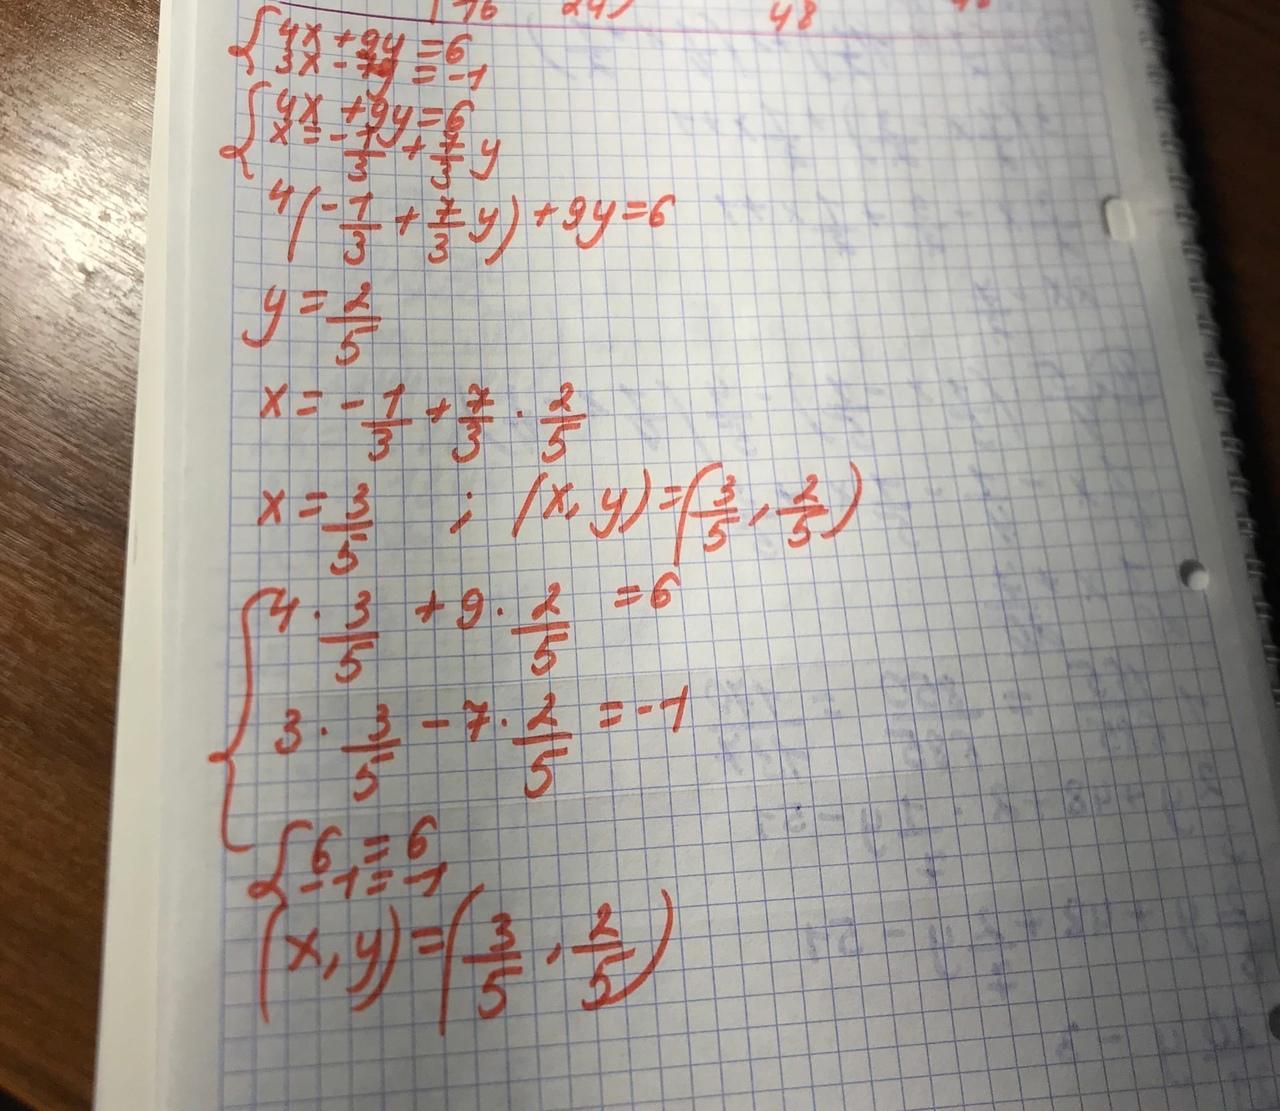 76 24) 48
{4x + 9y = 6
3x - 7y = -1
{4x + 9y = 6
x = -1/3 + 7/3 y
4(-1/3 + 7/3 y) + 9y = 6
y = 2/5
x = -1/3 + 7/3 · 2/5
x = 3/5 ; (x, y) = (3/5, 2/5)
{4 · 3/5 + 9 · 2/5 = 6
3 · 3/5 - 7 · 2/5 = -1
{6 = 6
-1 = -1
(x, y) = (3/5, 2/5)